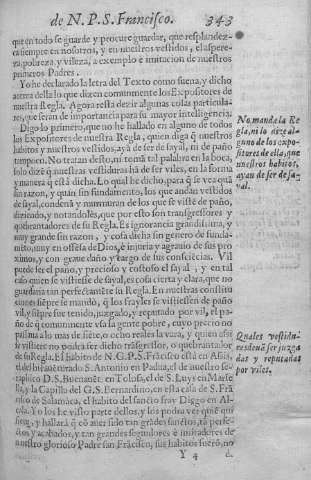 de N. P. S. Francisco. 343
que en todo se guarde y procure guardar, que resplandez-
ca siempre en nosotros, y en nuestros vestidos, el aspere-
za, pobreza, y vileza, a exemplo e imitacion de nuestros
primeros Padres.
Yo he declarado la letra del Texto como suena, y dicho
acerca della lo que dizen comunmente los Expositores de
nuestra Regla. Agora resta dezir algunas cosas particula-
res, que seran de importancia para su mayor inteligencia.
Digo lo primero, que no he hallado en alguno de todos
las Expositores de nuestra Regla, quien diga q̃ nuestros
habitos y nuestros vestidos, aya de ser de sayal, ni de paño
tampoco. No tratan desto, ni toma tal palabra en la boca,
solo dize q̃ nuestras vestiduras hã de ser viles, en la forma
y manera q̃ està dicho. Lo qual he dicho, para q̃ se vea quã
sin razon, y quan sin fundamento, los que andan vestidos
de sayal, condenã y murmuran de los que se viste de paño,
diziendo, y notandoles, que por esto son transgressores y
quebrantadores de su Regla. Es ignorancia grandissima, y
muy grande sin razon, y cosa dicha sin genero de funda-
mẽto, muy en offesa de Dios, è injuria y agravio de sus pro
ximos, y con grave daño y cargo de sus consciẽcias. Vil
puede ser el paño, y precioso y costoso el sayal, y en tal
caso quien se vistiesse de sayal, es cosa cierta y clara, que no
guardaria tan perfectamẽte su Regla. En nuestras constitu
ciones siẽpre se mandò, q̃ los frayles se vistiessen de paño
vil, y siẽpre fue tenido, juzgado, y reputado por vil, el pa-
ño de q̃ comunmente vsa la gente pobre, cuyo precio no
passa a lo mas de siete, o ocho reales la vara, y quien assi
se vistiere no podrà ser dicho trasgressor, o quebrantador
de su Regla. El habito de N. G. P. S. Frãcisco està en Assis,
el del bienaventurado S. Antonio en Padua, el de nuestro se-
raphico D. S. Buenavẽt. en Tolosa, el de S. Luys en Marse
lla, y la Capilla del G. S. Bernardino, en esta casa de S. Frã
cisco de Salamãca, el habito del sancto fray Diego en Al-
cala. Yo los he visto parte dellos, y los podra ver quiẽ qui
siere, y hallarà q̃ cõ aver sido tan grãdes sanctos, tã perfe-
ctos y acabados, y tan grandes seguidores è imitadores de
nuestro glorioso Padre san Frãcisco, sus habitos fuerõ, no
Y 4 d.
No manda la Re
gla, ni lo dize al-
guno de los expo-
sitores de ella, que
nuestros habitos,
ayan de ser de sa-
yal.
Quales vestidu-
ras deuẽ ser juzga
das y reputadas
por viles.